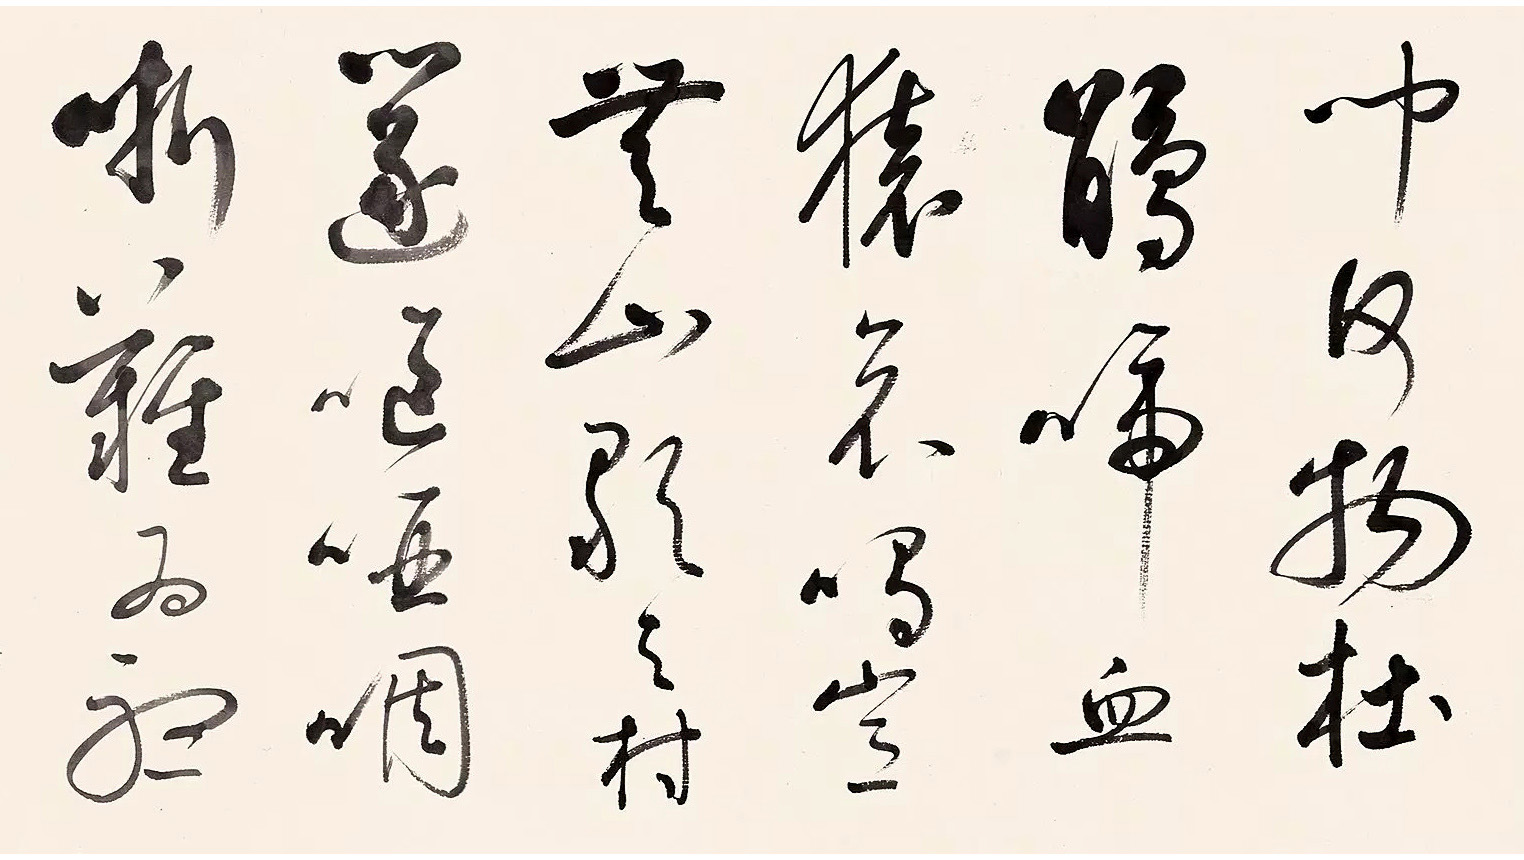 中何物杜
鵑啼血
猿哀鳴豈
無山歌與村
笛嘔啞嘲
哳難為聽